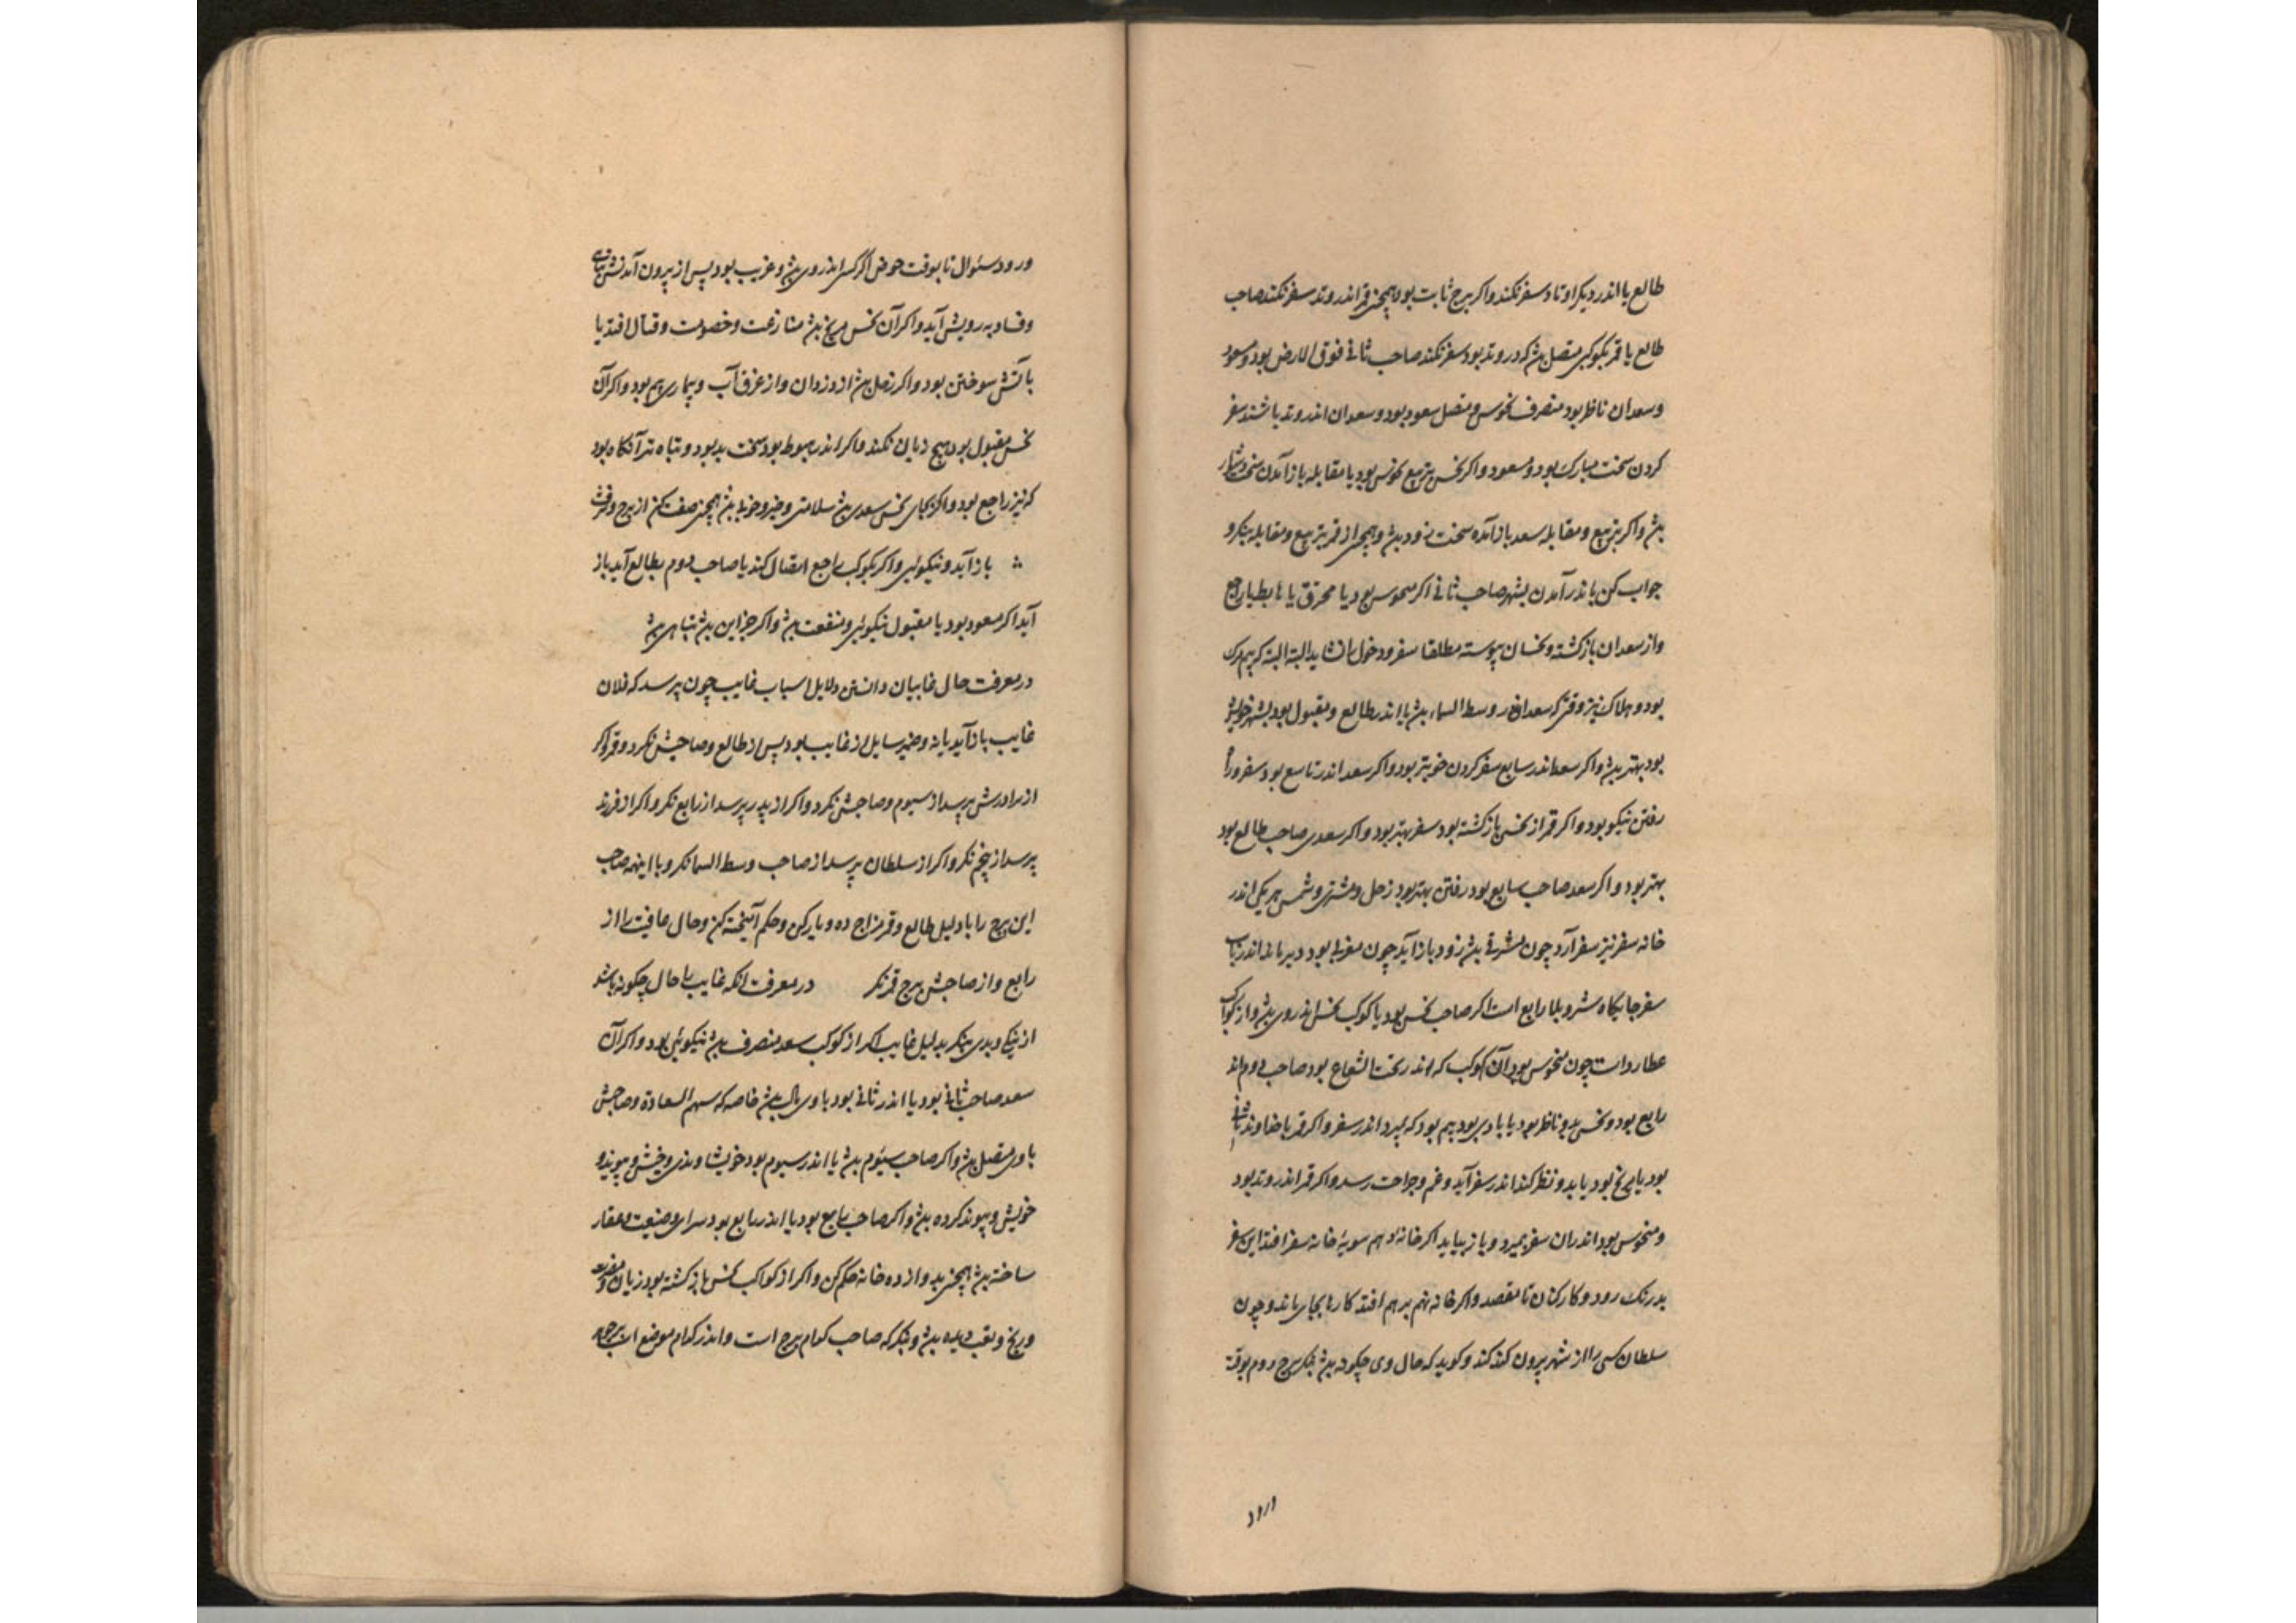 طالع یا اندر دیکر اوتاد سفر نکند و اکر برج ثابت بود همچنین قمر اندر وتد سفر نکند صاحب
طالع یا قمر بکوکبی متصل بشد که در وتد بود سفر نکند صاحب ثانی فوق الارض بود و مسعود
و سعدان ناظر بود منصرف نحوس و متصل سعود بود و سعدان اندر وتد باشند سفر
کردن سخت مبارک بود و مسعود و اکر نحس بتربیع نحوس بود یا مقابله باز آمدن سخت دشوار
بشد و اکر بتربیع و مقابله سعد باز آمده سخت زود بشد و همچنین از قمر بتربیع و مقابله بنکر و
جواب کن باندر آمدن بشهر صاحب ثانی اکر منحوس بود یا محترق یا هابط یا راجع
و از سعدان بازکشته و نحسان پیوسته مطلقا سفر و دخول را نشاید البته البته که بیم مرک
بود و هلاک نیز وقتی که سعد اندر وسط السماء بشد یا اندر طالع و مقبول بود بشهر خویش
بود بهتر بشد و اکر سعد اندر سابع سفر کردن خوبتر بود و اکر سعد اندر تاسع بود سفر و راه
رفتن نیکو بود و اکر قمر از نحسی بازکشته بود سفر بهتر بود و اکر سعدی صاحب طالع بود
بهتر بود و اکر سعد صاحب سابع بود رفتن بهتر بود زحل و مشتری و شمس هر یکی اندر
خانه سفر نیز سفر آرد چون مشرقی بشد زود باز آید چون مغربی بود دیر ماند اندر
سفر جایکاه شر و بلا رابع است اکر صاحب نحس بود یا کوکب نحس اندر وی بشد و از کواکب
عطارد است چون منحوس بود آن کوکب که اندر تحت الشعاع بود صاحب دوم اند
رابع بود و نحس بدو ناظر بود یا با وی بود بیم بود که بمیرد اندر سفر و اکر قمر با خداوند ثانی
بود یا مریخ بود یا بدو نظر کند اندر سفر آید و غم و جراحت رسد و اکر قمر اندر وتد بود
و منحوس بود اندران سفر بمیرد و باز نیاید اکر خانه دهم سویه خانه سفر افتد این سفر
بدرنک رود و کارکنان تا مقصد و اکر خانه نهم برهم افتد کارها بجای ماند و چون
سلطان کسی را از شهر بیرون کند کند و کوید که حال وی چکونه بشد بنکر برج دوم بوقت
ورود
ورود سئوال تا بوقت حوض اکر کسی اندر وی بشد و غریب بود پس از بیرون آمدنش
و فساد به رویش آید و اکر آن نحس مریخ بشد منازعت و خصومت و قتال افتد یا
باتش سوختن بود و اکر زحل بشد از دزدان و از غرق آب و بیماری بیم بود و اکر آن
نحس مقبول بود هیچ زیان نکند و اکر اندر هبوط بود سخت بد بود و تباه تر آنکاه بود
که نیز راجع بود و اکر بجای نحس سعدی بشد سلامتی و خیر و خوبی بشد همچنین صفت کن از برج و
باز آید و نیکوئی و اکر بکوکب راجع اتصال کند یا صاحب دوم بطالع آید باز
آید اکر مسعود بود یا مقبول نیکوئی و منفعت بشد و اکر جز این بشد تباهی بشد
در معرفت حال غایبان دانستن دلایل اسباب غایب چون پرسد که فلان
غایب باز آید یا نه و ضمیر سایل از غایب بود پس از طالع و صاحبش نکرد و قمر و اکر
از برادرش پرسد از سیوم و صاحبش نکرد و اکر از پدر پرسد از رابع نکر و اکر از فرزند
پرسد از پنجم نکر و اکر از سلطان پرسد از صاحب وسط السما نکر و با اینهمه صاحب
این برج را با دلیل طالع و قمر مزاج ده و یار کن و حکم آمیخته کن و حال عافیت را از
رابع و از صاحبش برج قمر نکر در معرفت انکه غایب را حال چکونه باشد
از نیکی و بدی بنکر بدلیل غایب اکر از کوکب سعد منصرف بشد نیکوئی بود و اکر آن
سعد صاحب ثانی بود یا اندر ثانی بود با وی مال بشد خاصه که سهم السعادة و صاحبش
با وی متصل بشد و اکر صاحب سیوم بشد یا اندر سیوم بود خویشاوندی و خویش و پیوند و
خویش و پیوند کرده بشد و اکر صاحب رابع بود یا اندر رابع بود سرای و ضیعت و عقار
ساخته بشد همچنین بد و ازده خانه حکم کن و اکر از کواکب نحس بازکشته بود زیان و مضرت
و رنج و تعب دیده بشد و بنکر که صاحب کدام برج است و اندر کدام موضع است